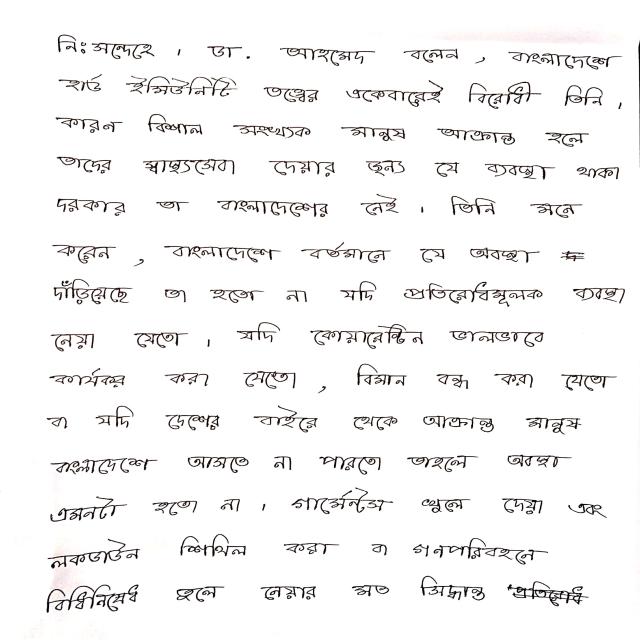 নিঃসন্দেহে । ডা. আহমেদ বলেন, বাংলাদেশে
হার্ড ইমিউনিটি তত্ত্বের একেবারেই বিরোধী তিনি,
কারণ বিশাল সংখ্যক মানুষ আক্রান্ত হলে
তাদের স্বাস্থ্যসেবা দেয়ার জন্য যে ব্যবস্থা থাকা
দরকার তা বাংলাদেশের নেই । তিনি মনে
করেন, বাংলাদেশে বর্তমানে যে অবস্থা
দাঁড়িয়েছে তা হতো না যদি প্রতিরোধমূলক ব্যবস্থা
নেয়া যেতো, যদি কোয়ারেন্টিন ভালভাবে
কার্যকর করা যেতো, বিমান বন্ধ করা যেতো
বা যদি দেশের বাইরে থেকে আক্রান্ত মানুষ
বাংলাদেশে আসতে না পারতো তাহলে অবস্থা
এমনটা হতো না । গার্মেন্টস খুলে দেয়া এবং
লকডাউন শিথিল করা বা গনপরিবহনে
বিধিনিষেধ তুলে নেয়ার মত সিদ্ধান্ত প্রতিরোধ